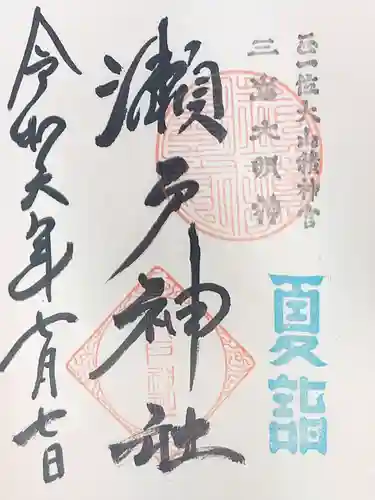 正一位大山積神宮
三島大明神
夏詣
瀬戸神社
令和六年七月七日